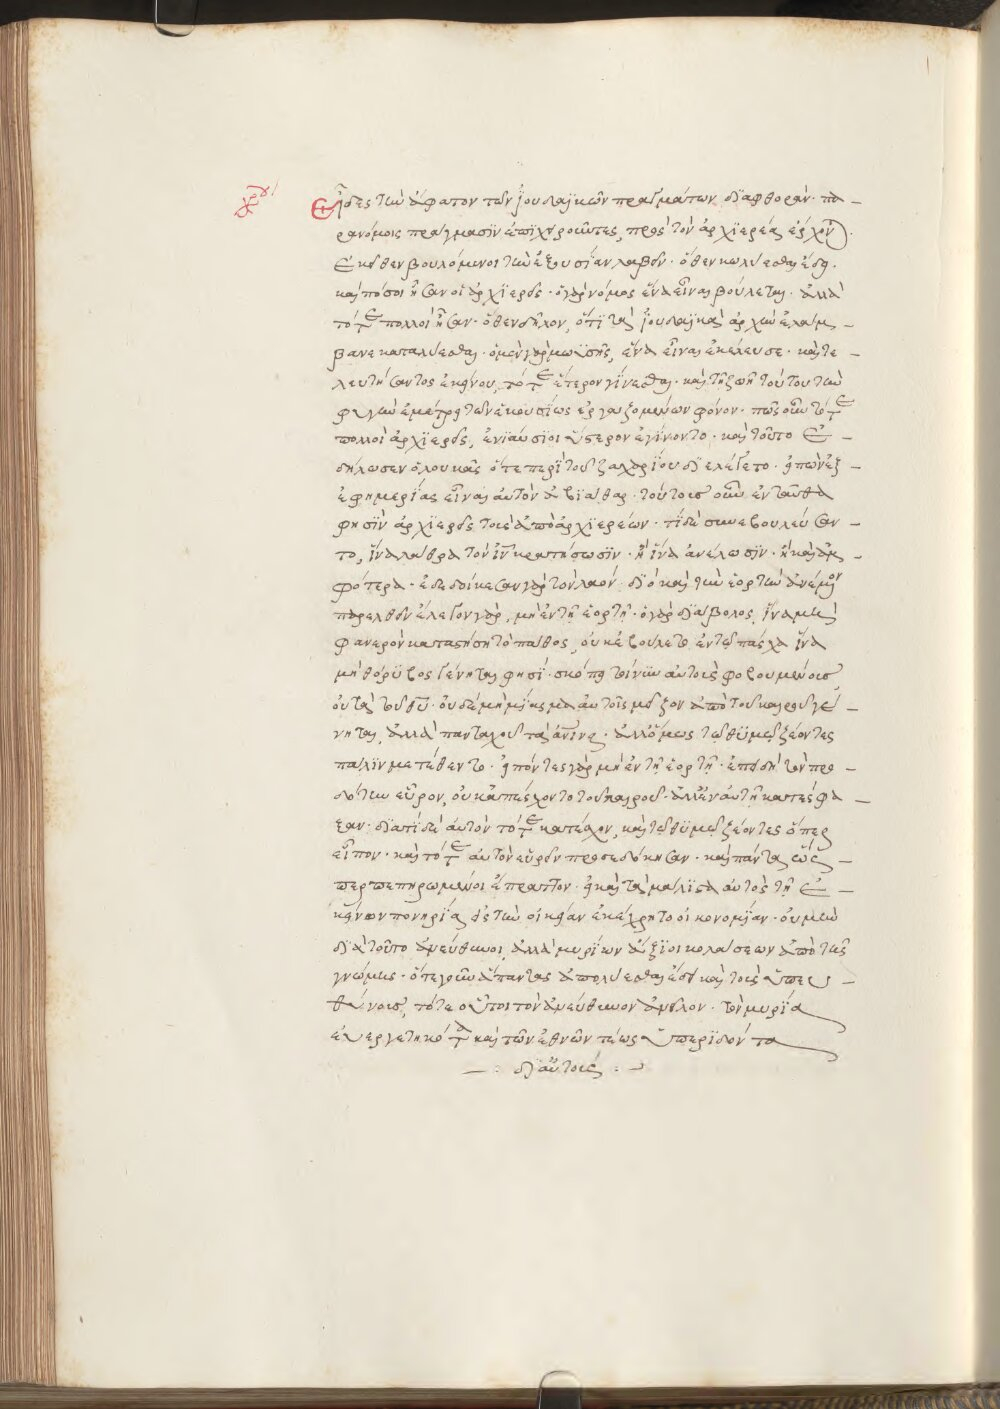 Εἶδες τὴν ἄφατον τῶν ἰουδαϊκῶν πραγμάτων διαφθοράν· πα
ρανόμοις πράγμασιν ἐπιχειροῦντες, πρὸς τὸν ἀρχιερέα ἔρχον
ἐκεῖθεν βουλόμενοι τὴν ἐξουσίαν λαβεῖν· ὅθεν κωλύεσθαι ἔδει·
καὶ πόσοι ἦσαν οἱ ἀρχιερεῖς· ὁ γὰρ νόμος ἕνα εἶναι βούλεται· ἀλλὰ
τότε πολλοὶ ἦσαν· ὅθεν δῆλον, ὅτι τὰ ἰουδαϊκὰ ἀρχὴν ἐλάμ
βανε καταλύεσθαι· ὁ μὲν γὰρ μωϋσῆς, ἕνα εἶναι ἐκέλευσε· καὶ τε
λευτήσαντος ἐκείνου, τότε ἕτερον γίνεσθαι· καὶ τῇ ζωῇ τούτου τὴν
φυγὴν ἐμέτρει τῶν ἀκουσίως ἐργαζομένων φόνον· πῶς οὖν τότε
πολλοὶ ἀρχιερεῖς, ἐνιαύσιοι ὕστερον ἐγίνοντο· καὶ τοῦτο ἐ
δήλωσεν ὁ λουκᾶς ὅτε περὶ τοῦ ζαχαρίου διελέγετο· εἰπὼν ἐξ
ἐφημερίας εἶναι αὐτὸν ἀβιάθαρ· τούτους οὖν ἐνταῦθά
φησιν ἀρχιερεῖς τοὺς ἀπὸ ἀρχιερέων· τί δὲ συνεβουλεύσαν
το, ἵνα λάθρα τὸν ἰν κρατήσωσιν· ἢ ἵνα ἀνέλωσιν· ἢ καὶ ἀμ
φότερα· ἐδεδοίκεσαν γὰρ τὸν λαόν· διὸ καὶ τὴν ἑορτὴν ἀνέμενον
παρελθεῖν ἔλεγον γὰρ, μὴ ἐν τῇ ἑορτῇ· ὁ γὰρ διάβολος, ἵνα μὴ
φανερὸν καταστήσῃ τὸ πάθος, οὐκ ἐβούλετο ἐν τῷ πάσχα ἵνα
μὴ θόρυβος γένηται φησί· σκόπει τοίνυν αὐτοὺς φοβουμένους
οὐ τὰ τοῦ θυ· οὐδὲ μὴ μίασμα αὐτοῖς μεῖζον ἀπὸ τοῦ καιροῦ γέ
νηται, ἀλλὰ πανταχοῦ τὰ ἀνινα· ἀλλ' ὅμως τῷ θυμῷ ζέοντες
πάλιν μετέθεντο· εἰπόντες γὰρ μὴ ἐν τῇ ἑορτῇ· ἐπειδὴ τὸν προ
δότην εὗρον, οὐκ ἀπέσχοντο τοῦ καιροῦ· ἀλλ' ἐν αὐτῇ κατέσφα
ξαν· διατί δὲ αὐτὸν τότε κατέσχον, καὶ τῷ θυμῷ ζέοντες ὅπερ
εἶπον· καὶ τότε αὐτὸν εὑρεῖν προσεδόκησαν· καὶ πάντα ὥς
περ πεπηρωμένοι ἔπραττον· εἰ καὶ τὰ μάλιστα αὐτὸς τῇ ἐ
κείνων πονηρίᾳ εἰς τὴν οἰκείαν ἐκέχρητο οἰκονομίαν· οὐ μὴν
διὰ τοῦτο ἀνεύθυνοι, ἀλλὰ μυρίων ἄξιοι κολάσεων ἀπὸ τῆς
γνώμης· ὅτε γοῦν ἅπαντας ἀπολύεσθαι ἔδει καὶ τοὺς ὑπευ
θύνους, τότε οὗτοι τὸν ἀνεύθυνον ἀνεῖλον· τὸν μυρία
εὐεργετηκότα καὶ τῶν ἐθνῶν τέως ὑπεριδόντα
δι' αὐτούς